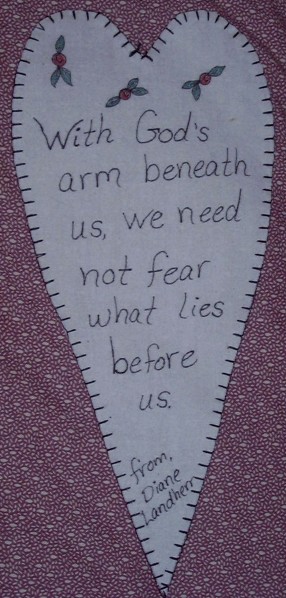 With God's
arm beneath
us, we need
not fear
what lies
before
us.
from,
Diane
Landherr